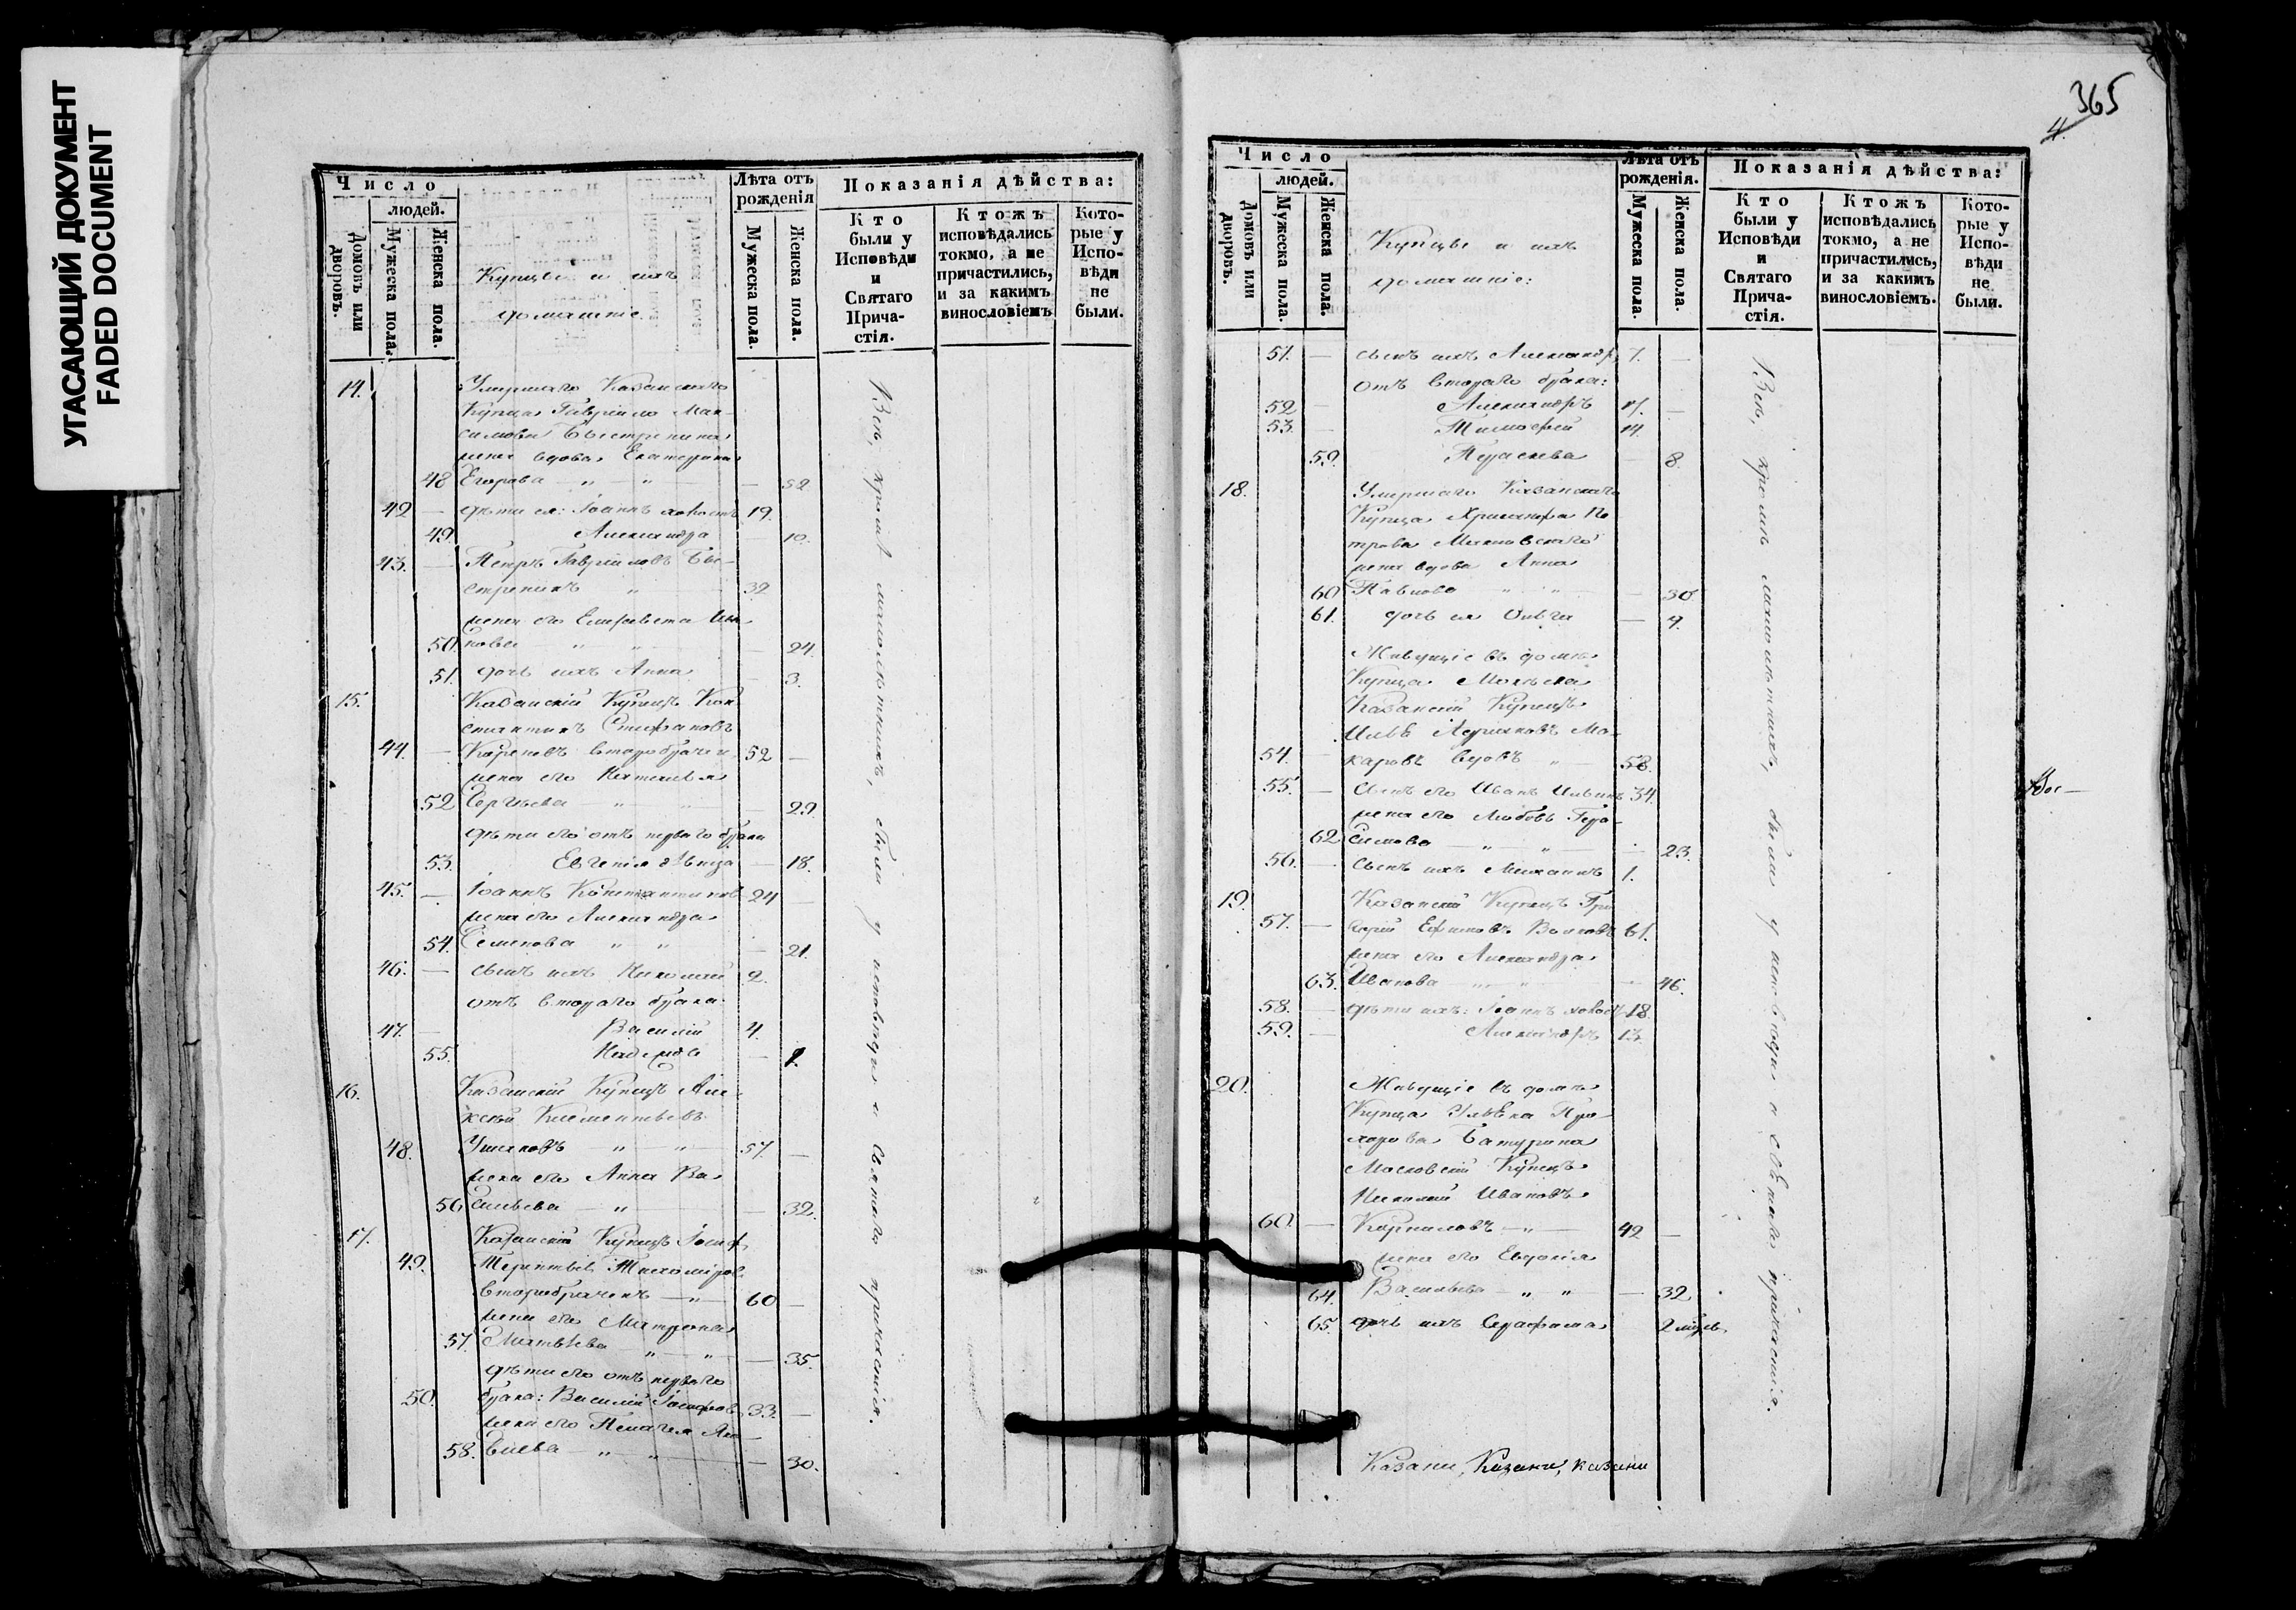 УГАСАЮЩИЙ ДОКУМЕНТ
FADED DOCUMENT
Число
людей.
Домовъ или дворовъ.
Мужеска пола.
Женска пола.
Купцы и ихъ
домашніе.
Лѣта отъ рожденія
Мужеска пола.
Женска пола.
Показанія дѣйства:
Кто были у Исповѣди и Святаго Прича-стія.
Ктожъ исповѣдались токмо, а не причастились, и за какимъ винословіемъ
Кото-рые у Испо-вѣди не были.
14. Умершаго Казанскаго
Купца Гавріила Мак-
симова Быстренина
жена вдова Екатерина
48 Егорова — " — " — 52
42 — дѣти ея: Іоаннъ холостъ 19.
49. Александра — 10.
43. — Петръ Гавріиловъ Бы-
стренинъ " 32
жена его Елизавета Ива
50. нова — " — " — 24.
51. дочь ихъ Анна — 3.
15. Казанскій Купецъ Кон
стантинъ Стефановъ
44. — Кореновъ второбрачн. 52 —
жена его Наталья
52 Сергѣева — " — " — 29.
дѣти его отъ перваго брака
53. Евгенія дѣвица — 18.
45. — Іоаннъ Константинов 24 —
жена его Александра
54. Семенова — " — " — 21.
46. — сынъ ихъ Николай 2.
отъ втораго брака:
47. — Василій 4.
55. Надежда — 1.
16. Казанскій Купецъ Але-
ксѣй Климентьевъ
48. Ушаковъ — " — " — 57. —
жена его Анна Ва
56 сильева — " — 32.
17. Казанскій Купецъ Іосиф
49. Терентьев Тихоміров
второбраченъ — " — 60 —
жена его Матрона
57. Матвѣева — " — " — 35.
дѣти его отъ перваго
50. брака: Василій Іосифов 33. —
жена его Пелагея Яко
58. влева — " — " — 30.
Всѣ, кромѣ малолѣтнихъ, были у исповѣди и святаго причастія.
365
4.
Число
людей.
Домовъ или дворовъ.
Мужеска пола.
Женска пола.
Купцы и ихъ
домашніе:
Лѣта отъ рожденія.
Мужеска пола.
Женска пола.
Показанія дѣйства:
Кто были у Исповѣди и Святаго Прича-стія.
Ктожъ исповѣдались токмо, а не причастились, и за какимъ винословіемъ.
Кото-рые у Испо-вѣди не были.
51. — сынъ ихъ Александръ 7. —
отъ втораго брака:
52 — Александръ 17. —
53. — Тимофей 14.
59. Параскева — 8.
18. Умершаго Казанскаго
Купца Хрисанфа Пе
трова Маковскаго
жена вдова Анна
60 Павлова — " — " — 30
61. дочь ея Ольга — 9.
Живущіе въ домѣ
Купца
Казанскій Купецъ
Илья Ларіоновъ Ма-
54. — каровъ вдовъ — " — 58.
55. — сынъ его Иванъ Ильинъ 34.
жена его Любовь Гера-
62 симова — " — " — 23.
56. — сынъ ихъ Михаилъ 1.
19. Казанскій Купецъ Гри
57. — горій Ефимовъ Волковъ 61.
жена его Александра
63. Иванова — " — 46.
58. — дѣти ихъ: Іоаннъ холостъ 18.
59. — Александръ 13.
20. Живущіе въ домѣ
Купца Про-
хорова Батурина
Московскій Купецъ
Николай Ивановъ
60. — Корниловъ — " — 42 —
жена его Евдокія
64. Васильева — " — " — 32
65. дочь ихъ Серафима 2 мѣсяц.
Всѣ, кромѣ малолѣтнихъ, были у исповѣди и святаго причастія.
Казани, Казани, казани